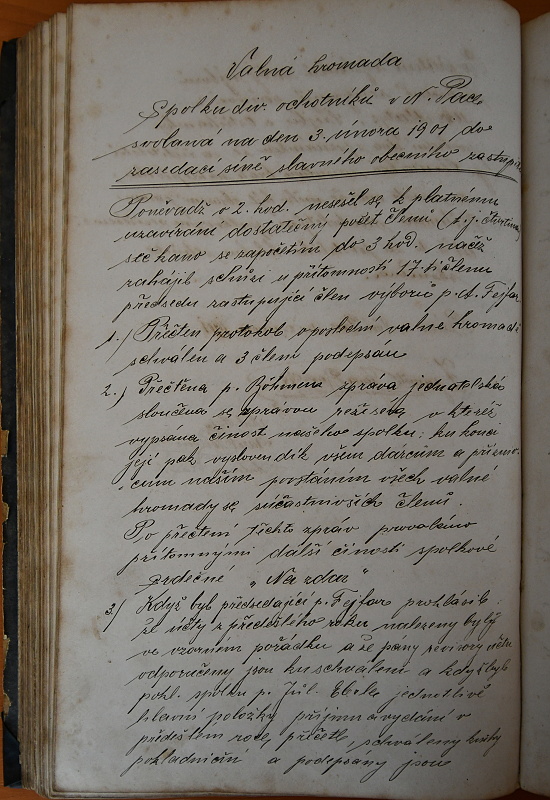 Valná hromada
Spolku div. ochotníků v N. Pace,
svolaná na den 3. února 1901 do
zasedací síně slavného obecního zastupit.
Poněvadž o 2. hod. nesešel se k platnému
uzavírání dostatečný počet členů (t. j. čtvrtina)
sečkáno se započetím do 3 hod. načež
zahájil schůzi u přítomnosti 17. ti členů
předsedu zastupující člen výboru p. A. Fejfar
1.) Přečten protokol o poslední valné hromadě
schválen a 3 členi podepsán
2.) Přečtena p. Böhmem zpráva jednatelská
sloučená se zprávou režiséra, v kteréž
vypsána činost našeho spolku; ku konci
její pak vysloven dík všem dárcům a přízniv-
cům naším povstáním všech valné
hromady se súčastnivších členů.
Po přečtení těchto zpráv provoláno
přítomnými další činosti spolkové
srdečné „Na zdar"
3.) Když byl předsedající p. Fejfar prohlásil
že účty z předešlého roku nalezeny byly
ve vzorném pořádku a že pány revisory účtů
odporučeny jsou ku schválení a když byl
pokl. spolku p. Jul. Ebele jednotlivé
hlavní položky příjmu a vydání v
předešlém roce, přečetl, schváleny knihy
pokladniční a podepsány jsou